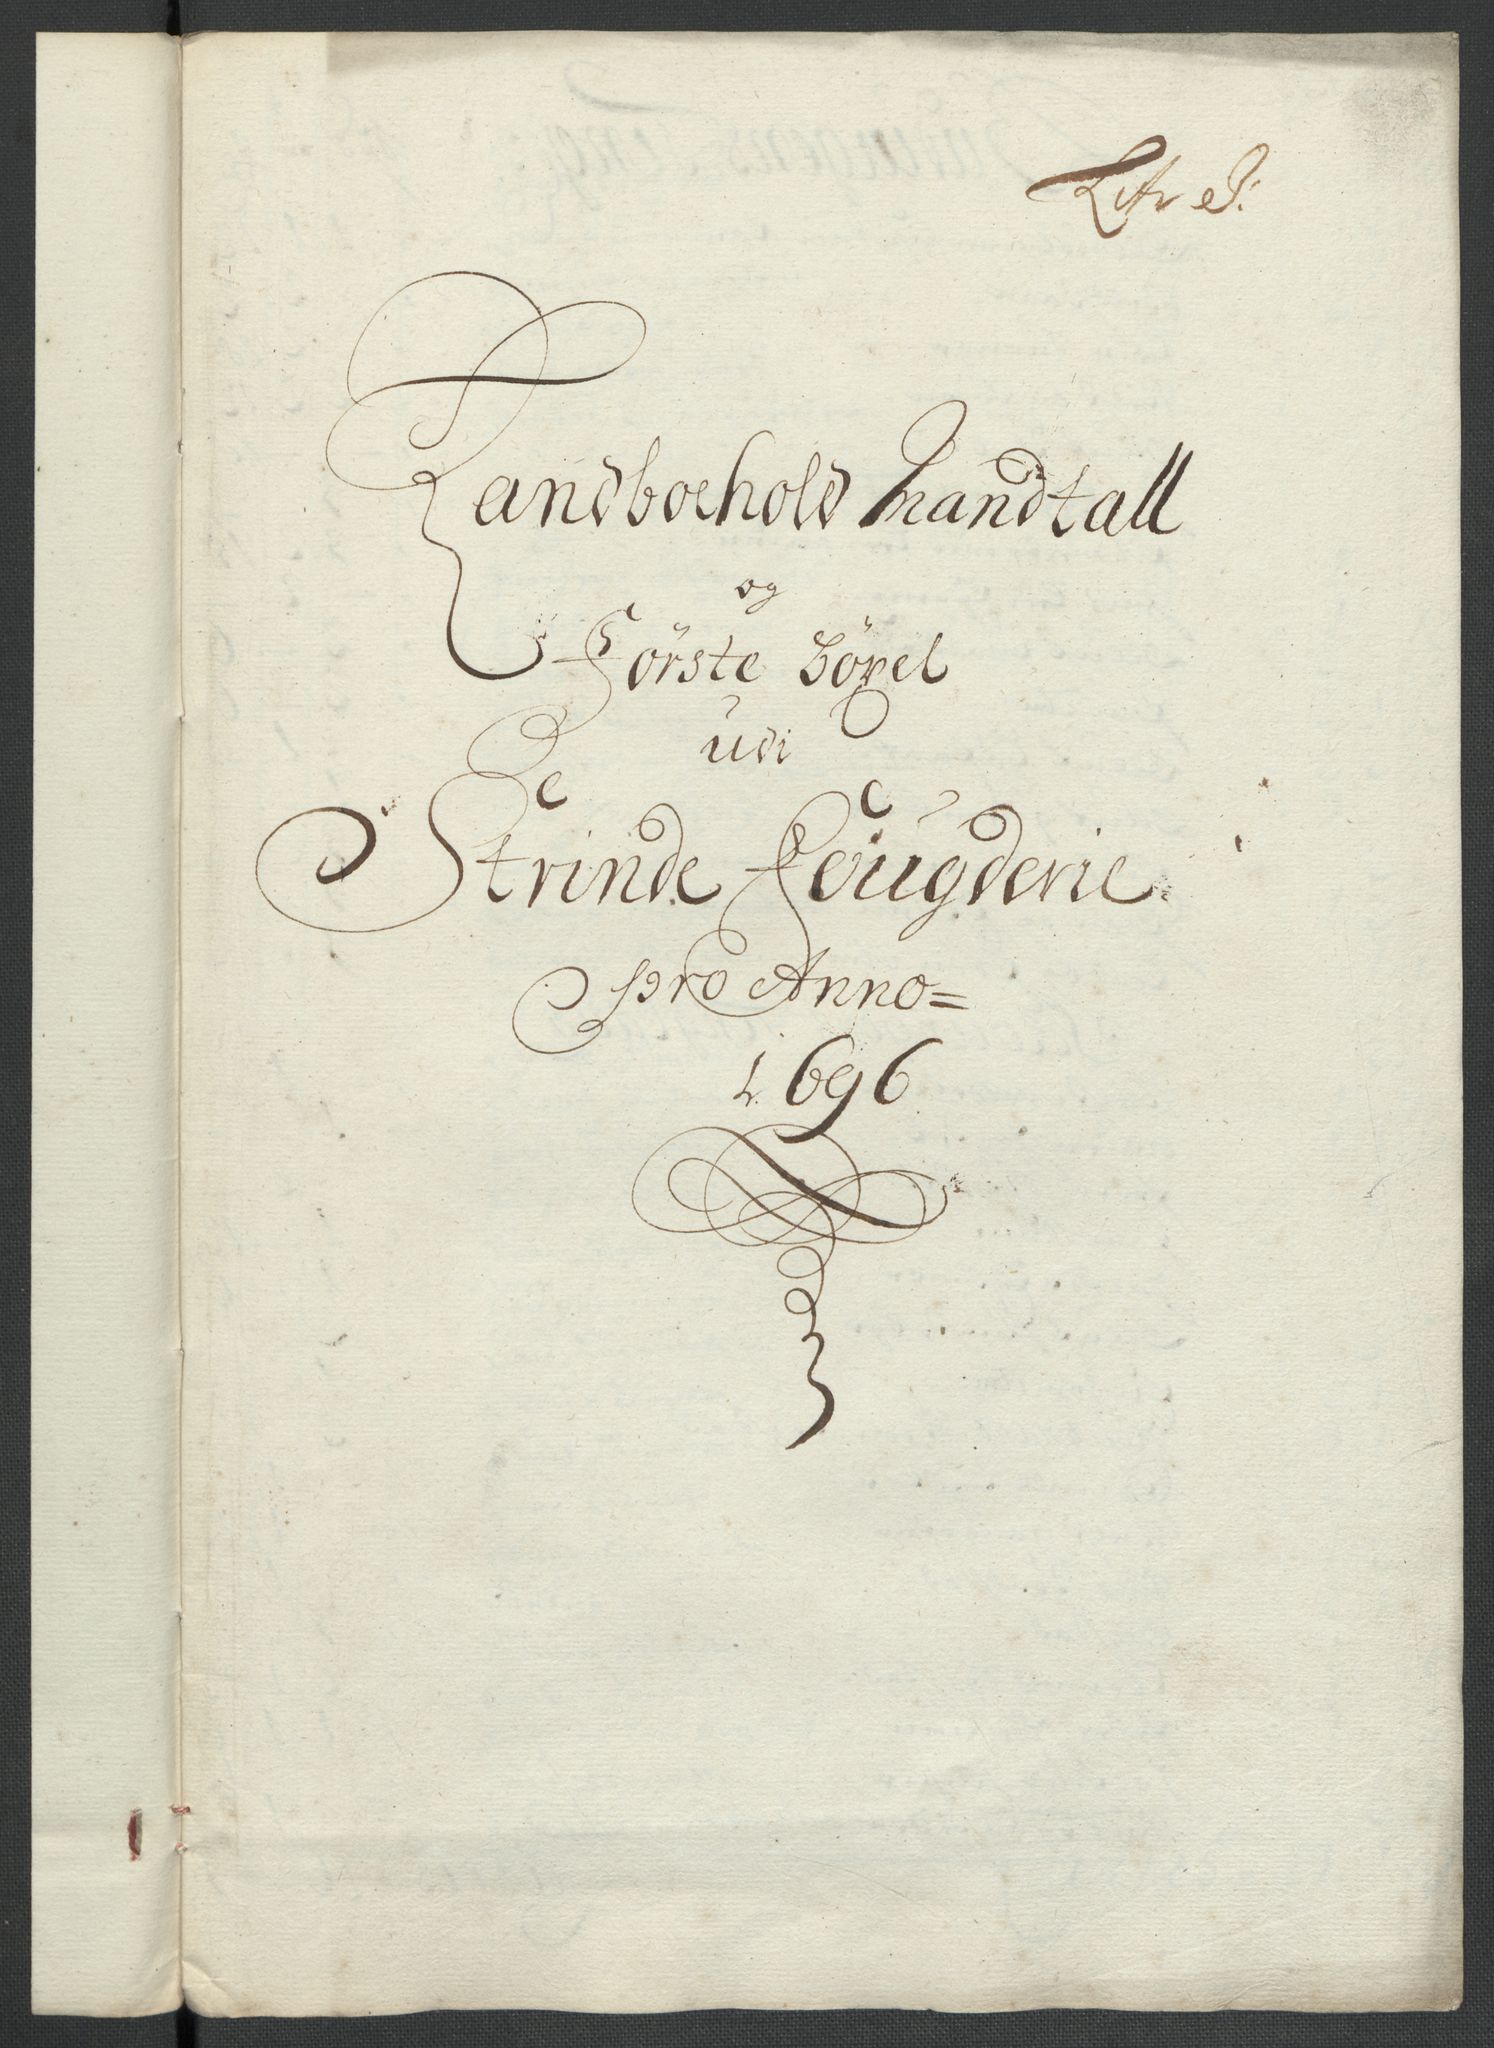 Litr. J:
Landboehold Mandtall
og
Förste Böxel
Udi
Strinde Fougderie
pro Anno=
1696